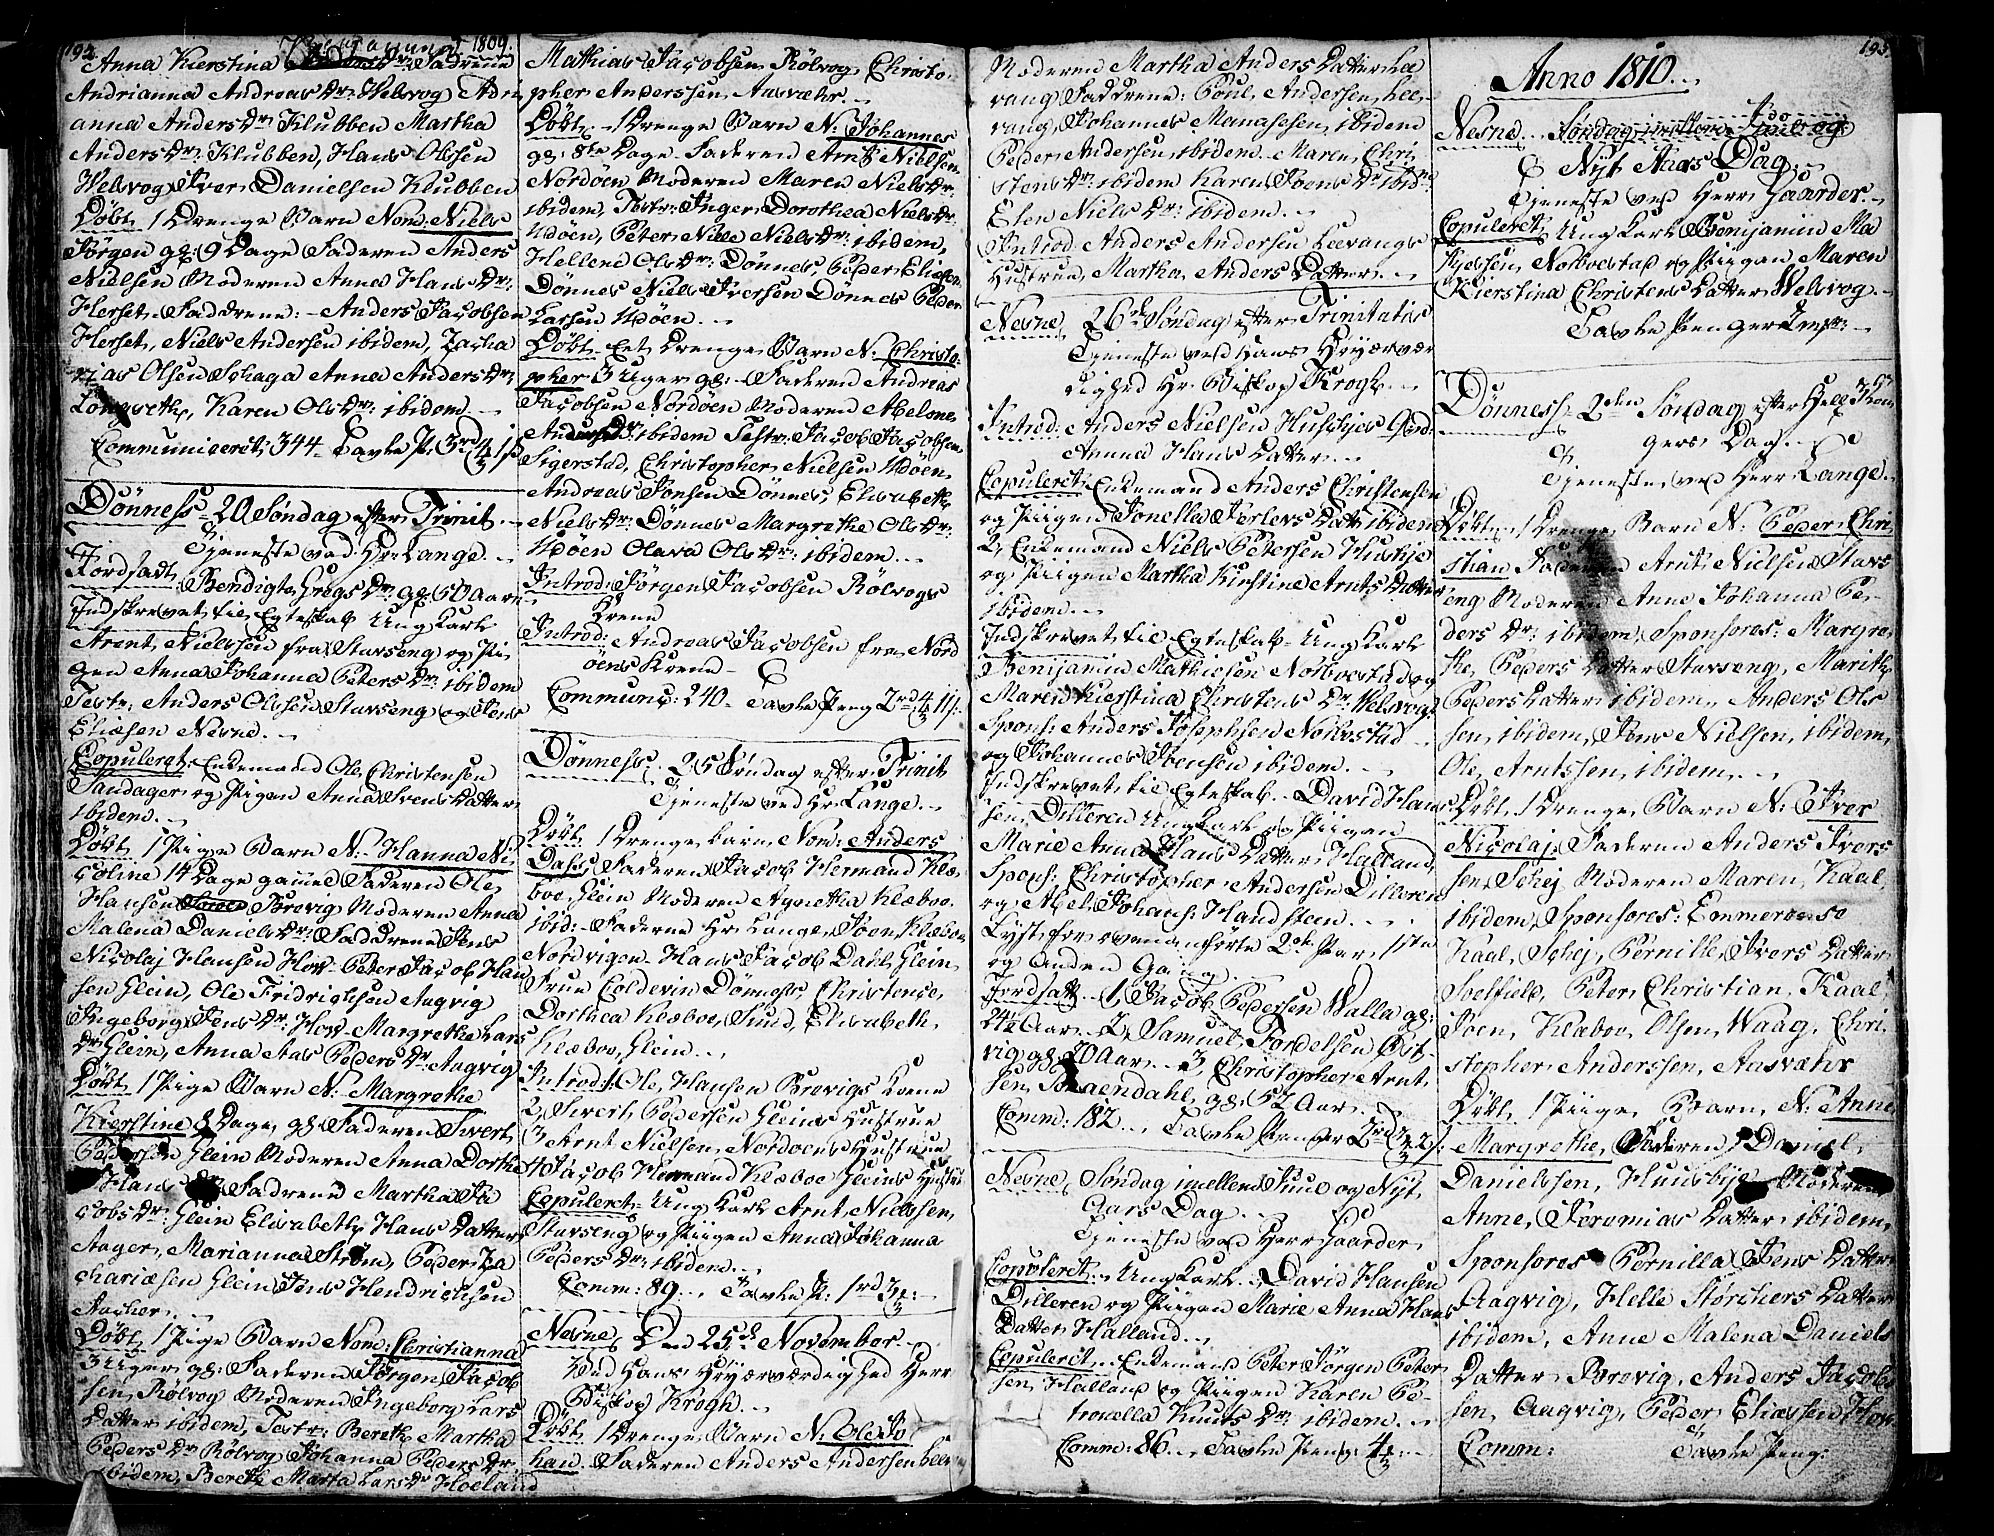 192
1809.
Anna Kierstina Fadrene
Andrianna Andreas Dr: Welsvog Adri
anna Anders Dr Klubben Martha
Anders Dr: Klubben, Hans Olssen
Welsvog Iver Danielsen Klubben
Døbt 1 Drenge Barn Nom: Niels
Jørgen gl: 9 Dage Faderen Anders
Nielsen Moderen Anna Hans Dr:
Herset Faddrene: Anders Jacobsen
Herset, Niels Andersen ibidem, Zacha
rias Olsen Schaga Anna Anders Dr:
Longseth, Karen Ols Dr: ibidem
Communiceret 344 Tavle P: 3rd
Dønness 20 Søndag efter Trinit
Tjeneste ved Hr: Lange
Jordsadt Bendigte Gregs Dr gl: 50 Aar
Indskrevet til Egteskab Ung Karl
Arent Nielssen fra Stavseng og Pi
gen Anna Johanna Peters Dr ibidem
Testr: Anders Olssen Stavseng og Jens
Eliæsen Nesne
Copuleret Enkemand Ole Christensen
Sandager og Pigen Anna Svens Datter
ibidem
Døbt 1 Pige Barn N: Hanna Ni
coline 14 Dage gammel Faderen Ole
Hansen Brevig Moderen Anna
Malena Daniels Dr: Faddrene Jens
Nicolaj Hansen Hov Peter Jacob Han
sen Glein, Ole Fridrichsen Aagvig
Ingeborg Jens Dr: Hov Margrethe Lars
Dr Glein, Anna Aas Peders Dr: Aagvig
Døbt 1 Pige Barn N: Margrethe
Kierstine 8 Dage gl: Faderen Sivert
Pedersen Glein Moderen Anna Dorthe
Hans Fadrene Martha Ja
cobs Dr: Glein Elisabeth Hans Datter
Aager, Marianna Strøm, Peder Za
chariæsen Glein Jens Hendrichsen
Aacher
Døbt 1 Pige Barn Nom: Christianna
3 Uger gl: Faderen Jørgen Jacob
sen Rølvog Moderen Ingeborg Lars
Datter ibidem, Testr: Bereth Martha
Peders Dr Rølvog Johanna Peders Dr
ibidem, Bereth Marta Lars Dr Hoeland
Mathias Jacobsen Rølvog Christo
pher Anderssen Aasvæhr
Døbt 1 Drenge Barn N: Johannes
gl: 8te Dage Faderen Arnt Nielsen
Nordøen Moderen Maren Niels Dr:
ibidem, Testr: Inger Dorothea Niels Dr:
Udøen, Peter Nille Niels Dr: ibidem,
Hellene Ols Dr: Dønnes, Peder Eliæsen
Dønnes Niels Iversen Dønnes Peder
Larsen Udøen
Døbt Eet Drenge Barn N: Christo
pher 3 Uger gl: Faderen Andreas
Jacobsen Nordøen Moderen Abelone
Anders Dr: ibidem Testr: Jacob Jacobsen
Sigerstad, Christopher Nielsen Udøen
Andreas Jonsen Dønnes Elisabeth
Niels Dr: Dønnes Margrethe Ols Dr:
Udøen Olava Ols Dr: ibidem
Introd: Jørgen Jacobsen Rølvogs
Krone
Introd: Andreas Jacobsen fra Nord
øens Krone
Communc: 240 Tavle Peng 2rd
Dønness 25 Søndag efter Trinit
Tjeneste ved Hr: Lange
Døbt 1 Drenge Barn Nom: Anders
Dass, Faderen Jacob Hermand Klæ
boe, Glein Moderen Agnetha Klæboe
ibid: Faderne Hr: Lange, Joen Klæboe
Nordvigen Hans Jacob Dahl Glein
Frue Coldevin Dønness, Christence
Dorthea Klæboe, Sund, Elisabeth
Klæboe, Glein
Introd: 1 Ole Hansen Brevigs Kone
2 Sivert Pedersen Gleins Hustrue
3 Arnt Nielsen, Nordøens Hustrue
4 Jacob Hermand Klæboe Gleins Hustrue
Copuleret Ung Karl Arnt Nielssen
Stavseng og Pigen Anna Johanna
Peders Dr: ibidem
Comm: 89 Tavle P: 1rd
Nesne Den 25de November
Ved Hans Høyærværdighed Herr
Biskop Krogh
Døbt 1 Drenge Barn N: Ole Jo
han Faderen Anders Andersen Lee
Moderen Martha Anders Datter Lee
vang Faddrene: Poul Andersen Lee
vang, Johannes Manasesen, ibidem
Peder Andersen, ibidem Maren Chri
stens Dr: ibidem Karen Joens Dr ibid:
Elen Niels Dr: ibidem
Introd: Anders Andersen Leevangs
Hustrue, Martha Anders Datter
Nesne 26de Søndag efter Trinitatis
Tjeneste ved Hans Høyærvær
dighed Hr: Biskop Krogh
Introd: Anders Nielsen Huskjes
Anna Hans Datter
Copuleret Enkemand Anders Christensen
og Piigen Jonella Jerlevs Datt: ibidem
2, Enkemand Niels Petersen Huskje
og Piigen Martha Kirstine Arnts Datter
ibidem
Indskrevet til Egteskab Ung Karl
Benjamin Mathiesen Nolvestad og
Maren Kierstina Christens Dr: Welsvog
Spons: Anders Josephsen Nolvstad
og Johannes Joensen ibidem
Indskrevet til Egteskab David Han
sen, Dilleren Ung Karl og Piigen
Marie Anna Hans Datter Halland
Spons: Christopher Andersen Dilleren
og Abel Johans: Handsteen
Lyst for ovenanførte 2de Par 1ste
og anden Gang
Jordsatt 1, Jacob Pedersen Walla gl:
24½ Aar 2, Samuel Fordelsen Øst
vig gl: 20 Aar 3, Christopher Arnt
sen Sørendahl gl: 52 Aar
Comm: 182 Tavle Penger 2rd
Nesne Søndag imellem Juul og Nyt
Aars Dag
Tjeneste ved Herr Gaarder
Copuleret Ung Karl David Hansen
Dilleren og Piigen Marie Anna Hans
Datter Halland
Copuleret Enkemand Peter Jørgen Peter
sen Halland og Piigen Karen Pe
tronella Knuts Dr: ibidem
Comm: 86 Tavle Peng: 4
193
Anno 1810
Nesne Søndag imellem Juul og
Nyt Aars Dag
Tjeneste ved Herr Gaarder
Copuleret Ung Karl Benjamin Ma
thjessen Nolvestad og Piigen Maren
Kierstina Christens Datter Welsvog
Tavle Penger Ingen
Dønness 2den Søndag efter Hell: 3 Kon
gers Dag
Tjeneste ved Herr Lange
Døbt 1 Drenge Barn N: Peder Chri
stian Faderen Arnt Nielsen Stavs
eng Moderen Anne Johanna Pe
ders Dr: ibidem, Sponsores: Margre
the Peders Datter Stavseng, Marith
Peders Datter ibidem, Anders Ols
sen, ibidem, Jens Nielsen, ibidem,
Ole Arntssen, ibidem
Døbt 1 Drenge Barn N: Iver
Nicolaj Faderen Anders Ivers
sen Schej Moderen Maren Kaal
ibidem, Sponsores: Emmerense
Kaal, Schej, Pernille Ivers Datter
Soelfield, Peter Christian Kaal
Joen Klæboe Olsen Waag, Chri
stopher Anderssen, Aasvæhr
Døbt 1 Piige Barn N: Anne
Margrethe, Faderen Daniel
Danielssen, Huusbye Moderen
Anne Jeremias Datter ibidem,
Sponsores Pernilla Jens Datter
Aagvig, Helle Størchers Datter
ibidem, Anne Malena Daniels
Datter Brevig, Anders Jacob
sen Aagvig, Peder Eliæssen Hov
Comm: Tavle Peng: